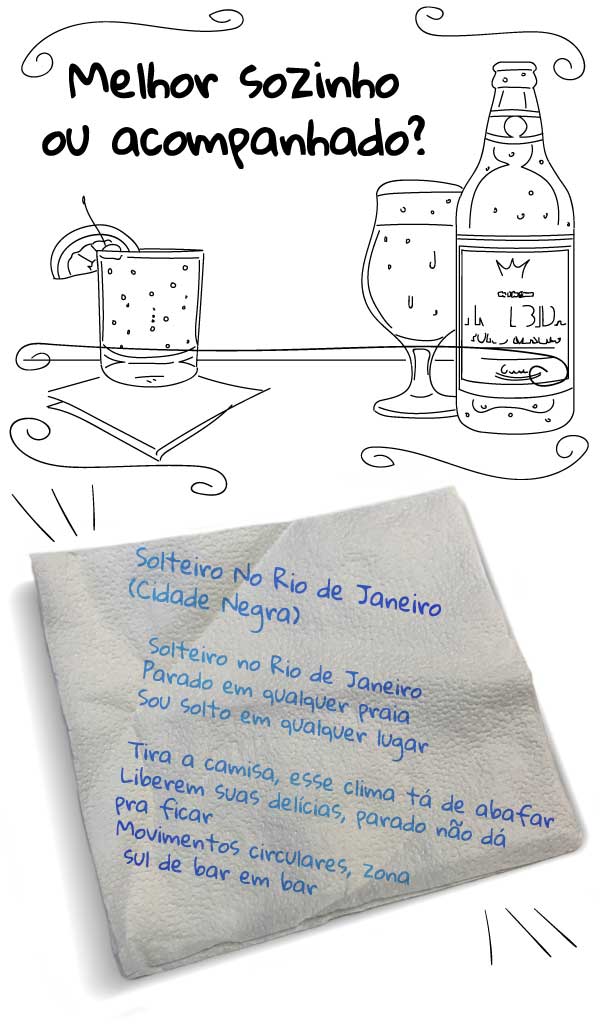 Melhor sozinho
ou acompanhado?
Solteiro No Rio de Janeiro
(Cidade Negra)
Solteiro no Rio de Janeiro
Parado em qualquer praia
Sou solto em qualquer lugar
Tira a camisa, esse clima tá de abafar
Liberem suas delícias, parado não dá
pra ficar
Movimentos circulares, zona
sul de bar em bar